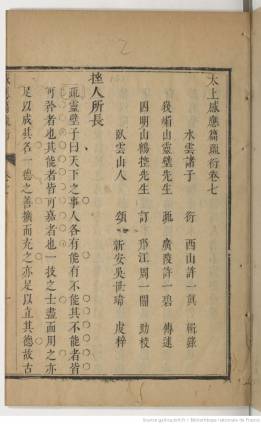 太上感應篇疏衍卷七
水雲諸子 衍 西山許一 輯錄
峨嵋山靈壁先生 疏 廣陵許一碧 傳述
四明山鶴控先生 訂 邗江周一閣 勘校
臥雲山人 頌 新安吳世瑋 虔梓
揜人所長
疏靈壁子曰天下之事人各有能有不能其不能者皆
可矜者也其能者皆可嘉者也一技之士盡而用之亦
足以成其名一德之善擴而充之亦足以直其德故古
Source gallica.bnf.fr / Bibliothèque nationale de France